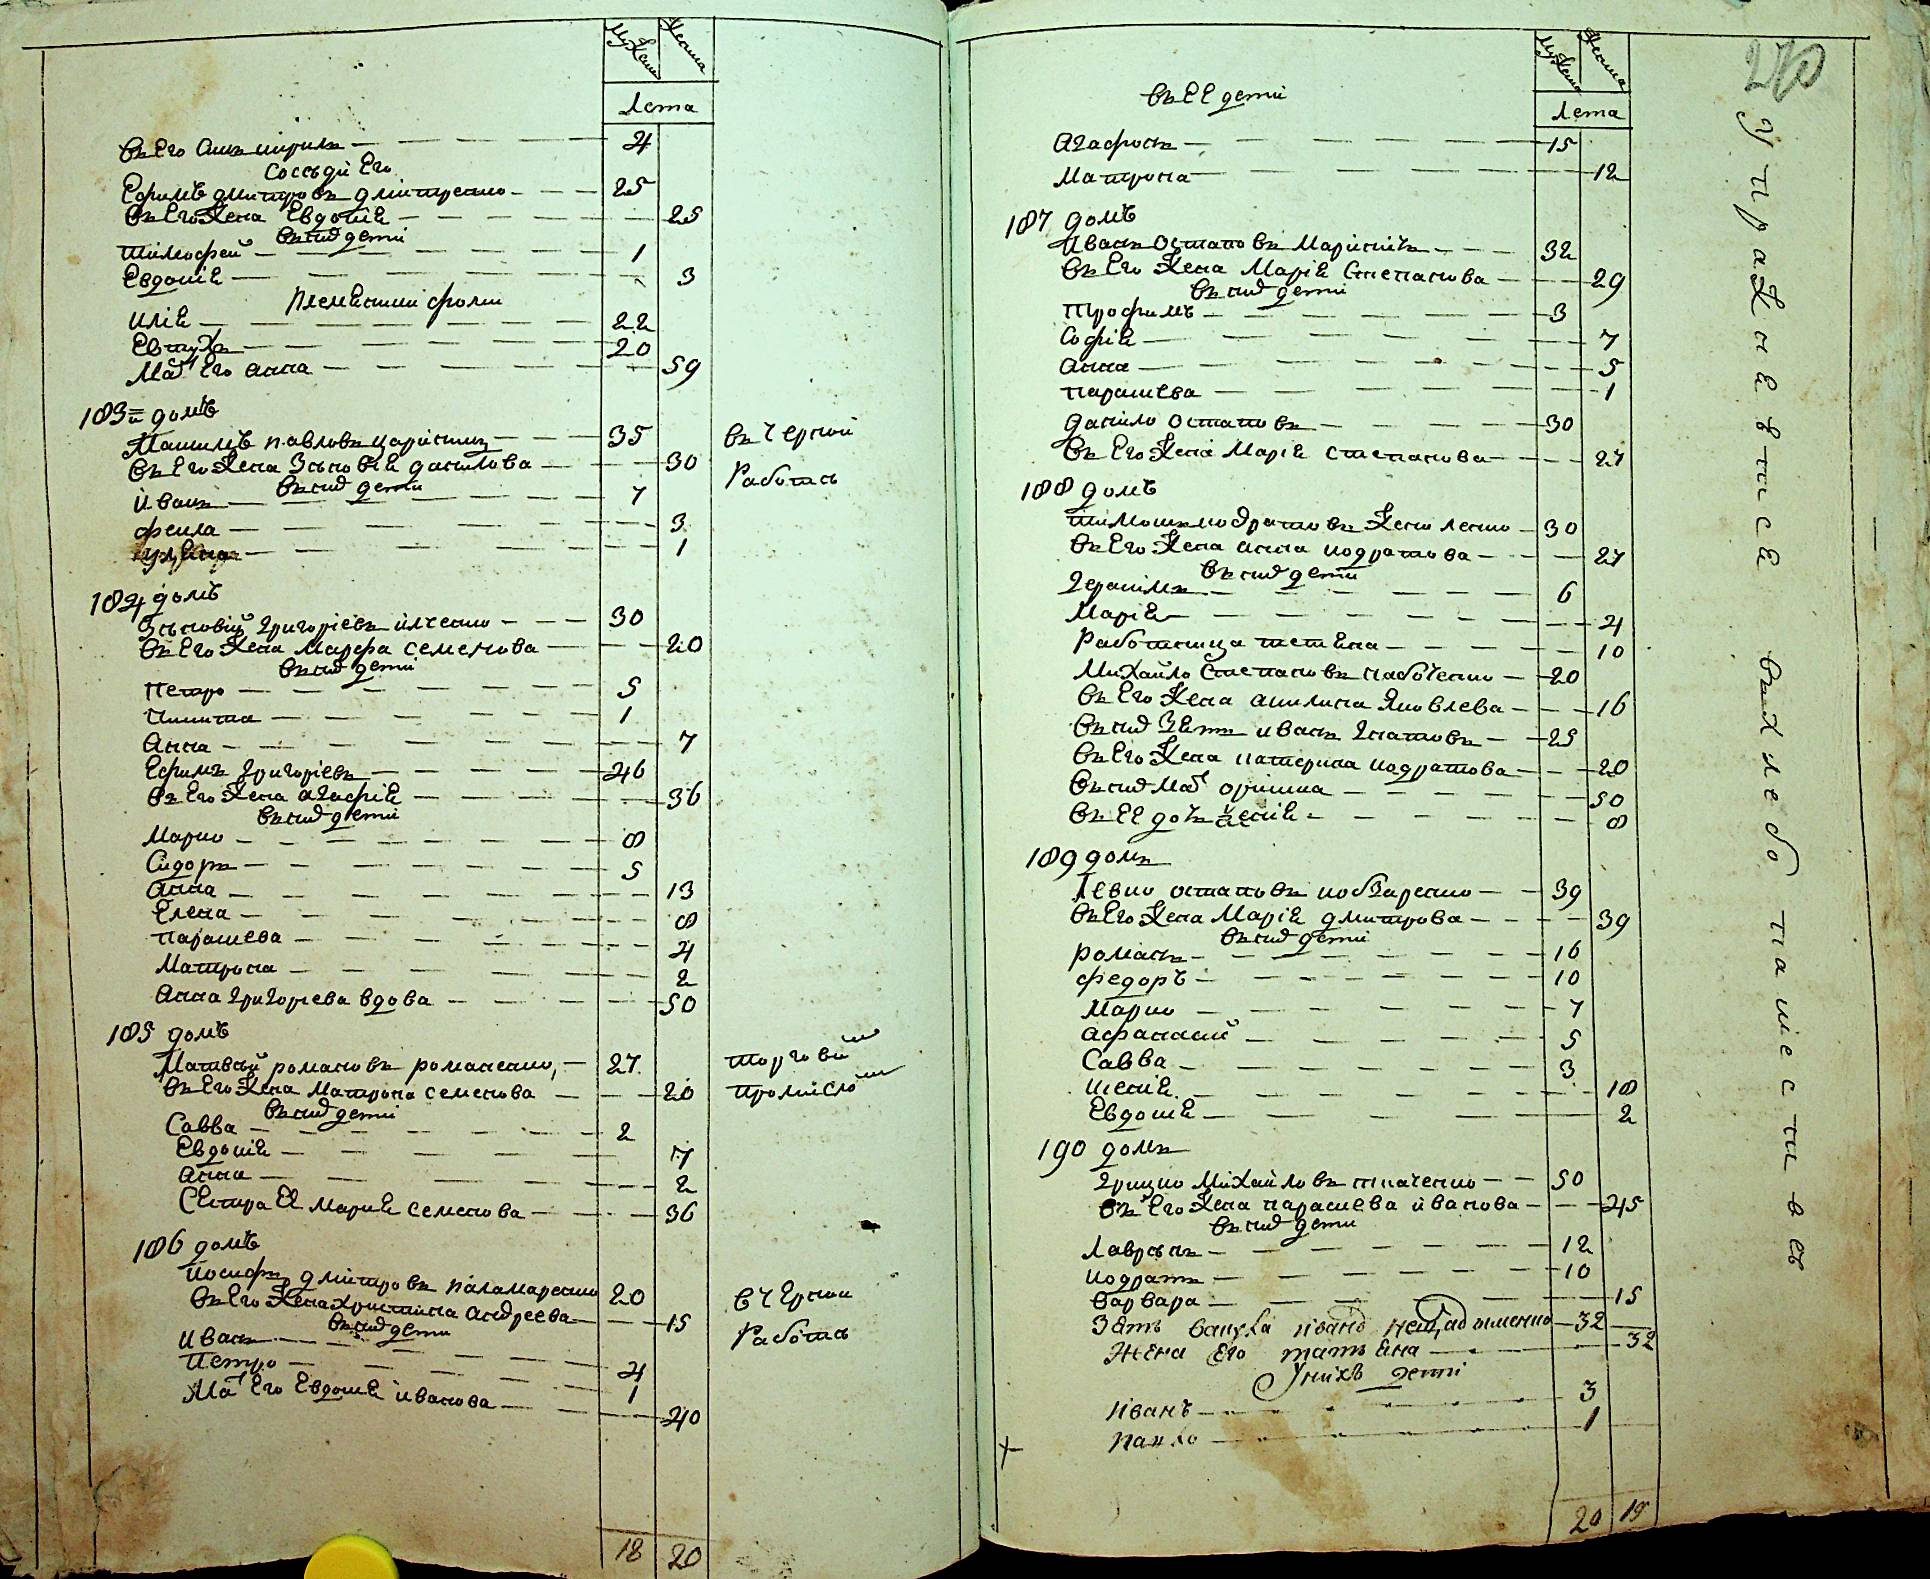 Мужска Женска
Лета
въ Его Сынъ Кирилъ 4
Сосѣди Его
Ефимъ Дмитровъ Дмитренко 25
въ Его Жена Евдокіѣ 25
въ них дети
Тимофей 1
Евдокіѣ 3
Племѣнники Фоми
Иліѣ 22
Евтухъ 20
Мат Его Анна 59
183й домъ
Павловъ 35 въ Черной
въ Его Жена Зѣновіѣ Данилова 30 Работѣ
въ них дети
Иванъ 7
Фекла 3
1
184 домъ
Зѣновій Григоріевъ Илченко 30
въ Его Жена Марфа Семенова 20
въ них дети
Петро 5
Никита 1
Анна 7
Ефимъ Григоріевъ 46
въ Его Жена Агафіѣ 36
въ них дети
Марко 8
Сидоръ 5
Анна 13
Елена 8
Параскева 4
Матрона 2
Анна Григоріева вдова 50
185 домъ
Матвѣй Романовъ Романенко 27 торговй
въ Его Жена Матрона Семенова 20 промисло
въ них дети
Савва 2
Евдокіѣ 7
Анна 2
Сѣстра Еѣ Маріѣ Семенова 36
186 домъ
Йосифъ Дмитровъ Паламаренко 20 в Черной
въ Его Жена Христина Андреева 15 Работѣ
въ них дети
Иванъ 4
Петро 1
Мат Его Евдокіѣ Иванова 40
18 20
Мужска Женска
Лета
270
въ ЕЕ дети
Агафонъ 15
Матрона 12
187 домъ
Иванъ Остаповъ 32
въ Его Жена Маріѣ Степанова 29
въ них дети
Трофимъ 3
Софіѣ 7
Анна 5
Параскева 1
Данило Остаповъ 30
въ Его Жена Маріѣ Степанова 27
188 домъ
Кодратовъ 30
въ Его Жена Анна Кодратова 27
въ них дети
Герасимъ 6
Маріѣ 4
Работница Тетѣна 10
Михайло Степановъ 20
въ Его Жена Акилина Яковлева 16
въ них Зѣтъ Иванъ Гнатовъ 25
въ Его Жена Катерина Кодратова 20
въ них Мат Оришка 50
въ ЕЕ доч Ксеніѣ 8
189 домъ
Левко Остаповъ Кобзаренко 39
въ Его Жена Маріѣ Дмитрова 39
въ них дети
Романъ 16
Федоръ 10
Марко 7
Афанасий 5
Савва 3
Ксеніѣ 18
Евдокіѣ 2
190 домъ
Грицко Михайловъ Ткаченко 50
въ Его Жена Параскева Иванова 45
въ них дети
Лаврѣнъ 12
Кодратъ 10
Варвара 15
Зять Иванъ 32
Жена Его Татьяна 32
У нихъ дети
Иванъ 3
Панко 1
20 19
Упражнеѣтисѣ въ хлебопашестве